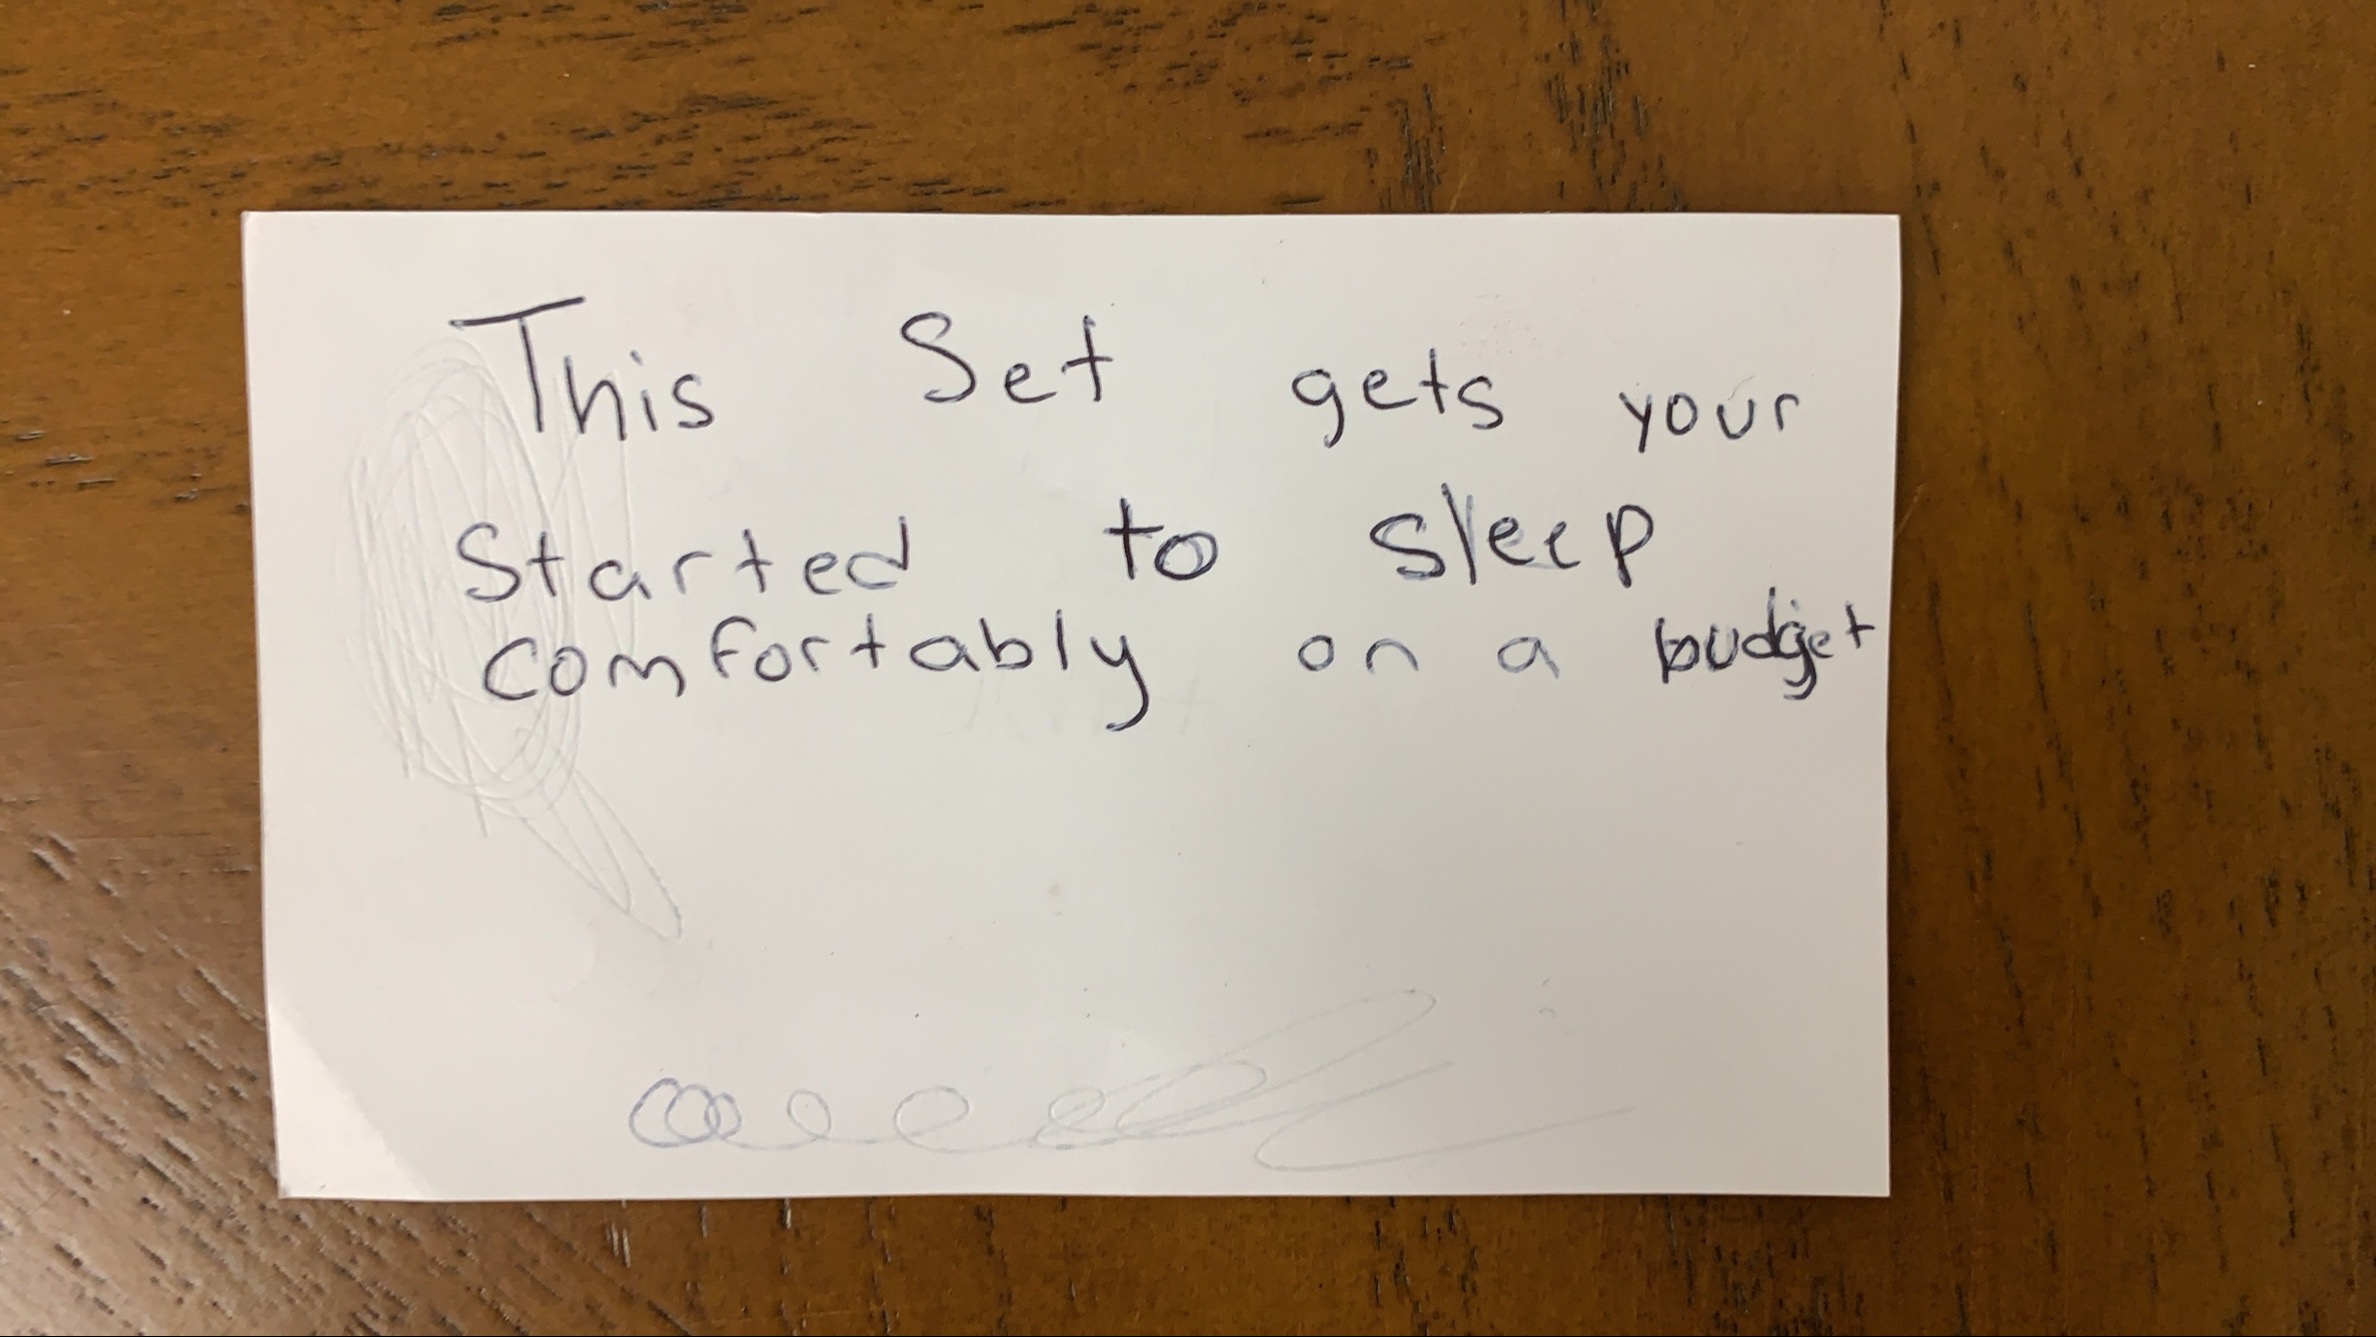 This Set gets your
Started to sleep
comfortably on a budget